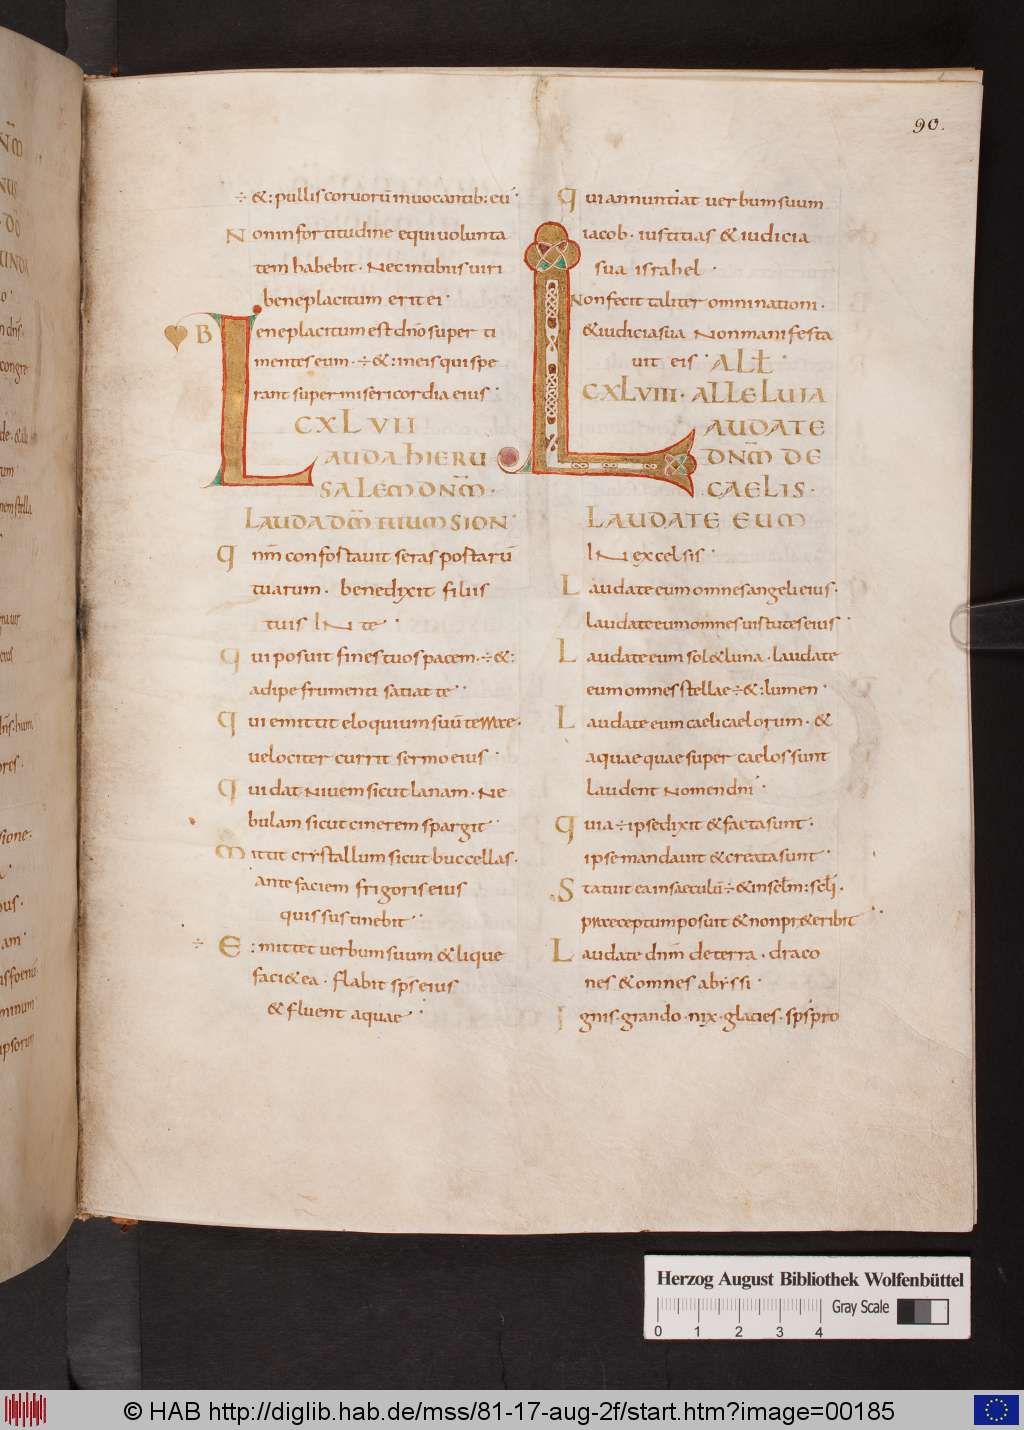 90.
÷ &: pullis coruorū inuocantib: eū
Non in fortitudine equi uolunta
tem habebit · Nec in tibus uiri
beneplacitum erit ei ·
Beneplacitum est dn̄o super ti
mentes eum · ÷ &: in eis qui spe
rant super misericordia eius ·
CXLVII
LAUDA HIERU
SALEM DNM̄ ·
LAUDA DM̄ TUUM SION
Qnm̄ confortauit seras portarū
tuarum · benedixit filiis
tuis IN te ·
Qui posuit fines tuos pacem · ÷ &:
adipe frumenti satiat te ·
Qui emittit eloquium suū terrae ·
uelociter currit sermo eius ·
Qui dat Niuem sicut lanam · Ne
bulam sicut cinerem spargit ·
Mittit crystallum sicut buccellas ·
ante faciem frigoris eius
quis sustinebit ·
÷ E: mittet uerbum suum & lique
faci& ea · flabit sp̄s eius
& fluent aquae ·
Qui annuntiat uerbum suum
iacob · iustitias & iudicia
sua israhel ·
Non fecit taliter omni nationi ·
& iudicia sua Non manifesta
uit eis · ALŁ ·
CXLVIII · ALLELUIA
LAUDATE
DNM̄ DE
CAELIS ·
LAUDATE EUM
IN excelsis ·
Laudate eum omnes angeli eius ·
laudate eum omnes uirtutes eius ·
Laudate eum sol & luna · laudate
eum omnes stellae ÷ &: lumen ·
Laudate eum caeli caelorum · &
aquae quae super caelos sunt
laudent Nomen dn̄i ·
Quia ÷ ipse dixit & facta sunt :
ipse mandauit & creata sunt ·
Statuit ea in saeculū ÷ & in scl̄m: scl̄i ·
praeceptum posuit & non pr&eribit ·
Laudate dn̄m de terra · draco
nes & omnes abyssi ·
Ignis · grando · nix · glacies · sp̄s pro
Herzog August Bibliothek Wolfenbüttel
Gray Scale
0 1 2 3 4
© HAB http://diglib.hab.de/mss/81-17-aug-2f/start.htm?image=00185